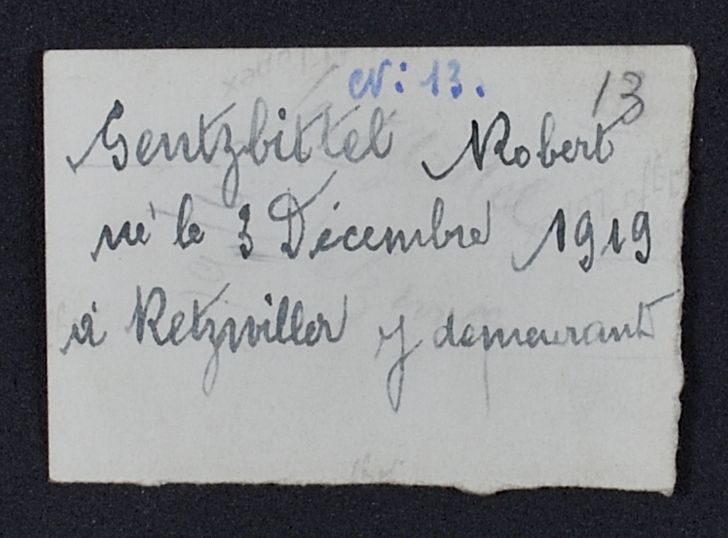 N: 13.
13
Gentzbittel Robert
né le 3 Décembre 1919
à Retzwiller y demeurant